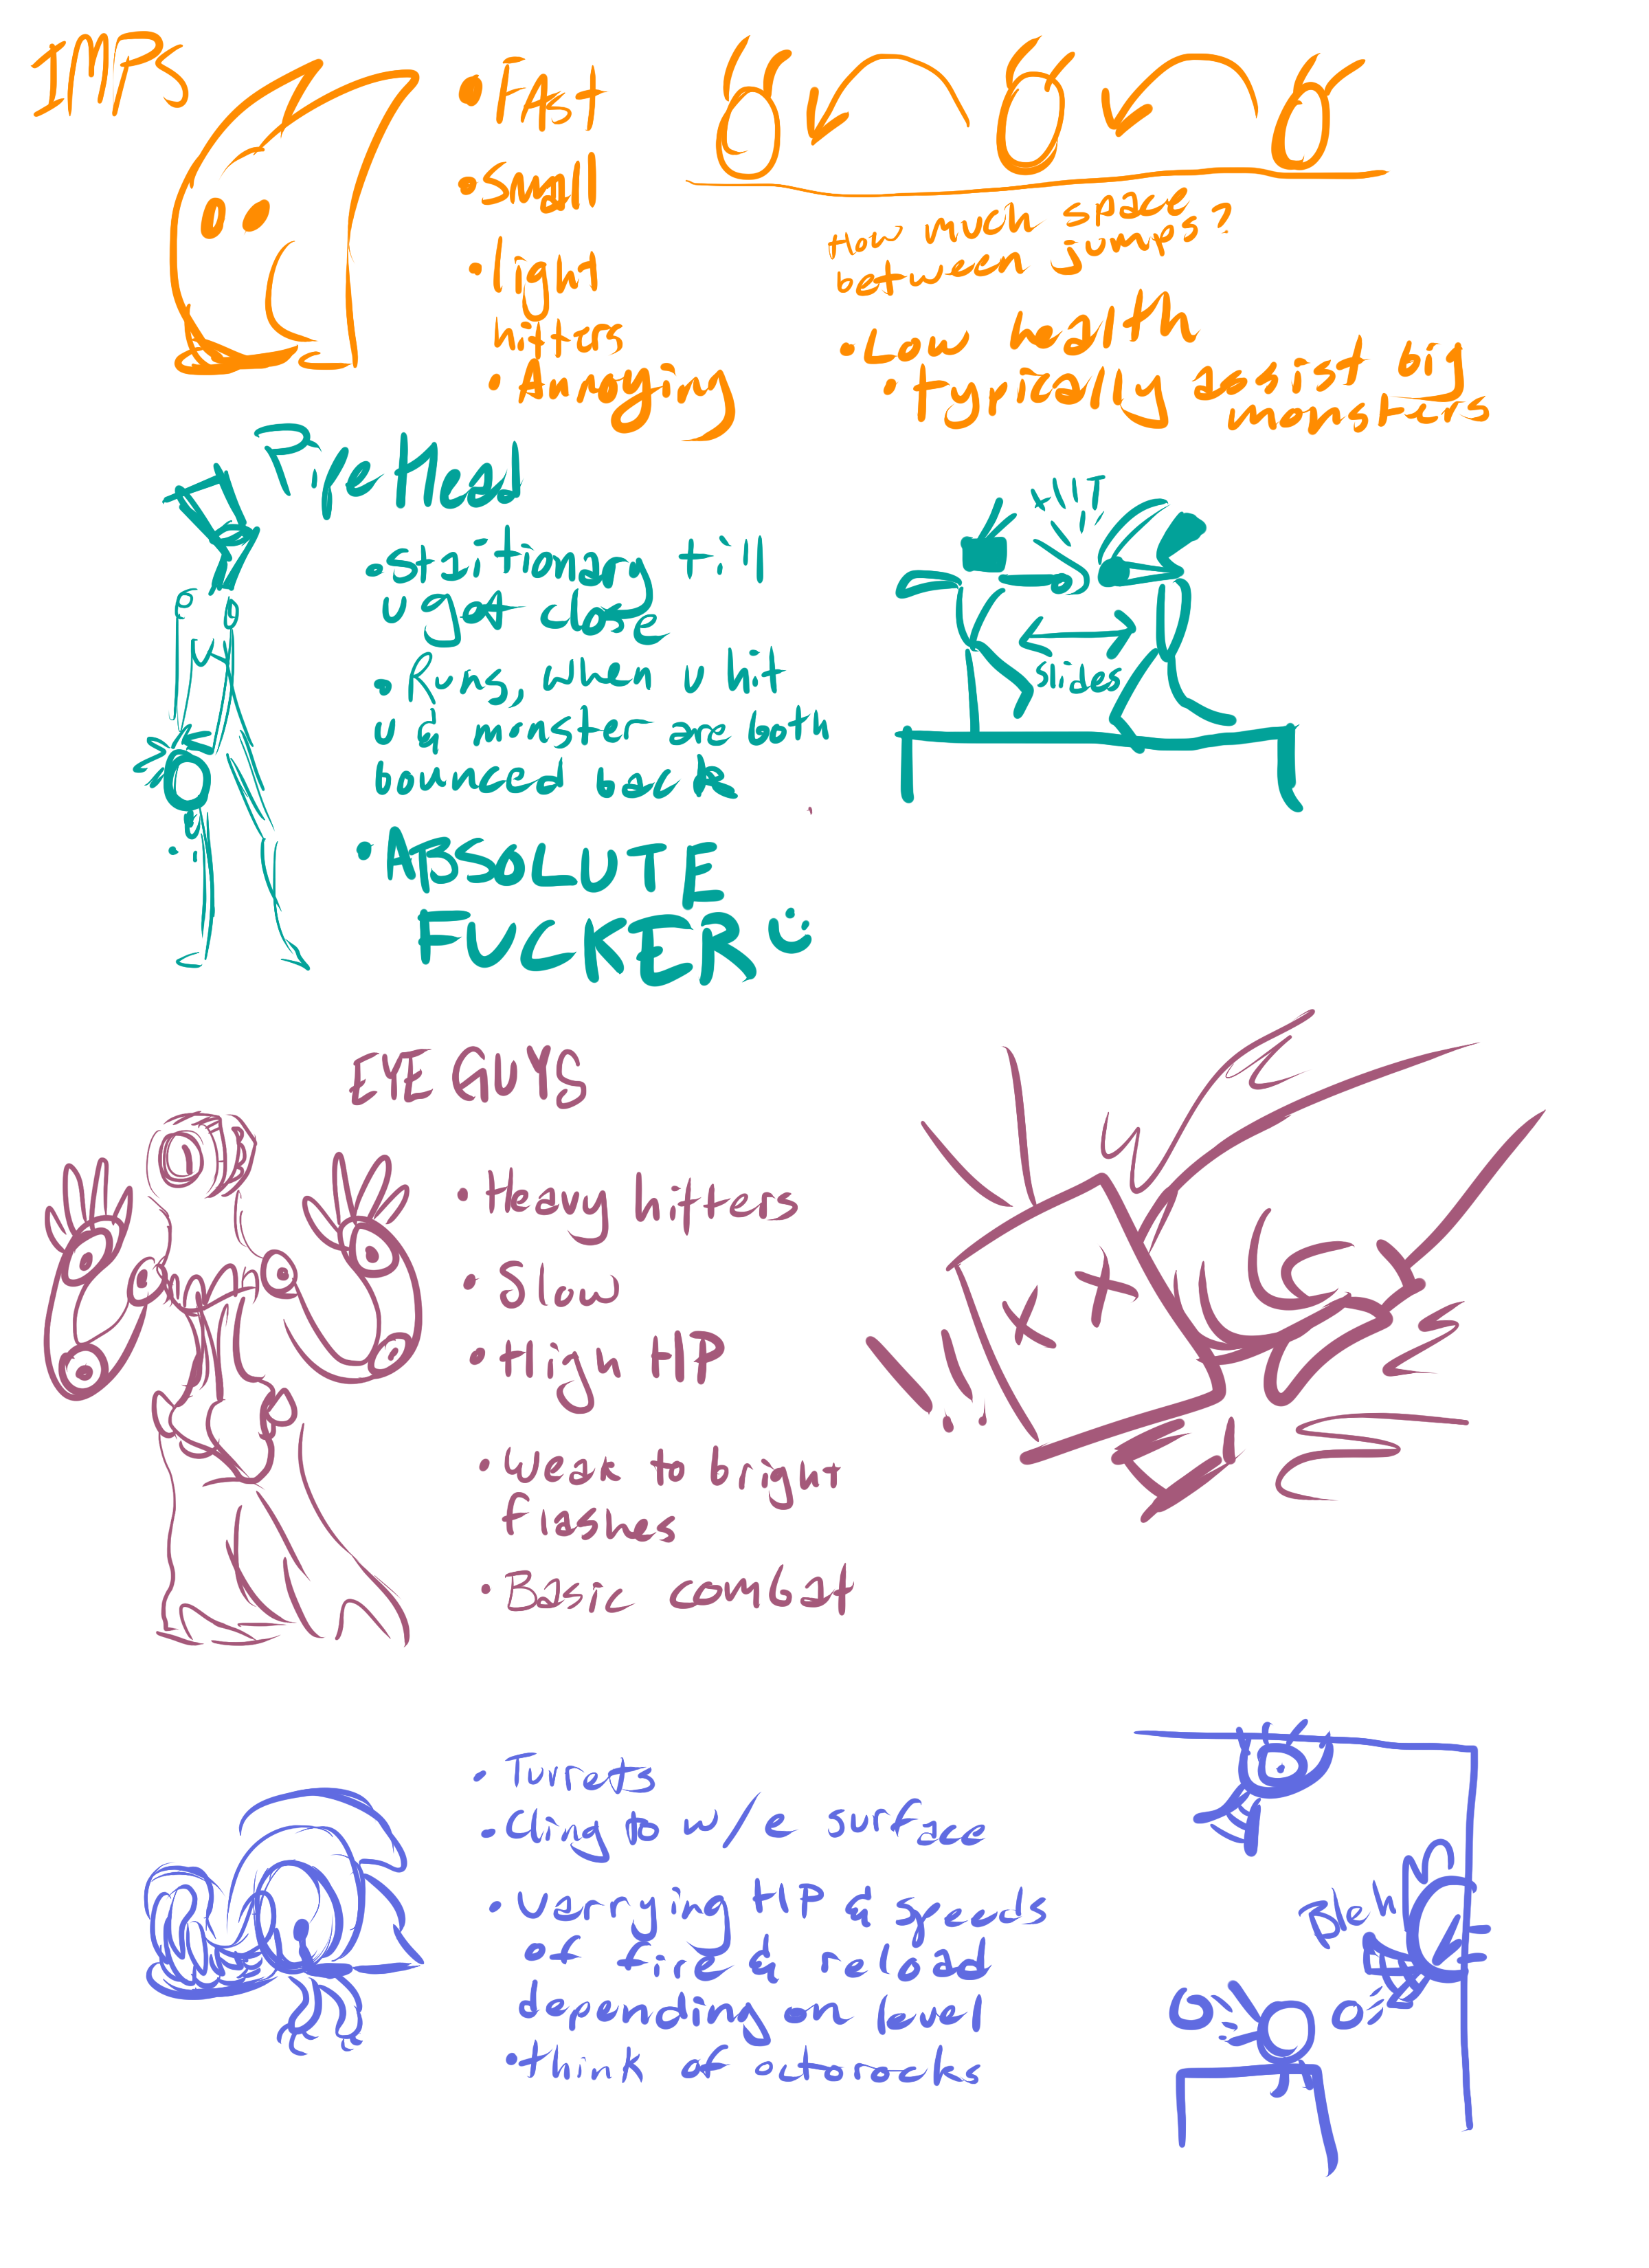 IMPS
• FAst
• Small
• light
hitters
• Annoying
How much space
between jumps?
• Low health
• typically assist big
monsters
PyeHead
• stationary till
u get close
• Runs, when u hit
u & monster are both
bounced back
• ABSOLUTE
FUCKER
slides
EYE GUYS
• Heavy hitters
• Slow
• High HP
• Weak to bright
flashes
• Basic combat
• Turrets
• Cling to w/e surface
• Varrying HP & speeds
of fire & reload
depending on level
• think of octorocks
Bleh